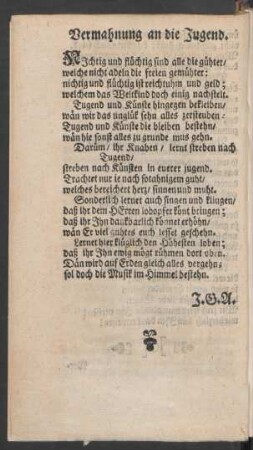 Vermahnung an die Jugend.
NIchtig und flüchtig sind alle die gühter/
welche nicht adeln die freien gemühter:
nichtig und flüchtig ist reichtuhm und geld;
welchem das Weltkind doch einig nachstelt.
Tugend und Künste hingegen bekleiben/
wän wir das unglük sehn alles zersteuben/
Tugend und Künste die bleiben bestehn/
wän hie sonst alles zu grunde mus gehn.
Darüm/ ihr Knaben/ lernt streben nach
Tugend/
streben nach Künsten in euerer jugend.
Trachtet nur ie nach sotahnigem guht/
welches bereichert hertz/ sinnen und muht.
Sonderlich lernet auch singen und klingen/
daß ihr dem HErren lobopfer könt bringen;
daß ihr Jhn dankbarlich könnet erhöhn/
wän Er viel guhtes euch lesset geschehn.
Lernet hier klüglich den Höhesten loben;
daß ihr Jhn ewig mögt rühmen dort oben.
Dän wird auf Erden gleich alles vergehn/
sol doch die Musik im Himmel bestehn.
J.G.A.